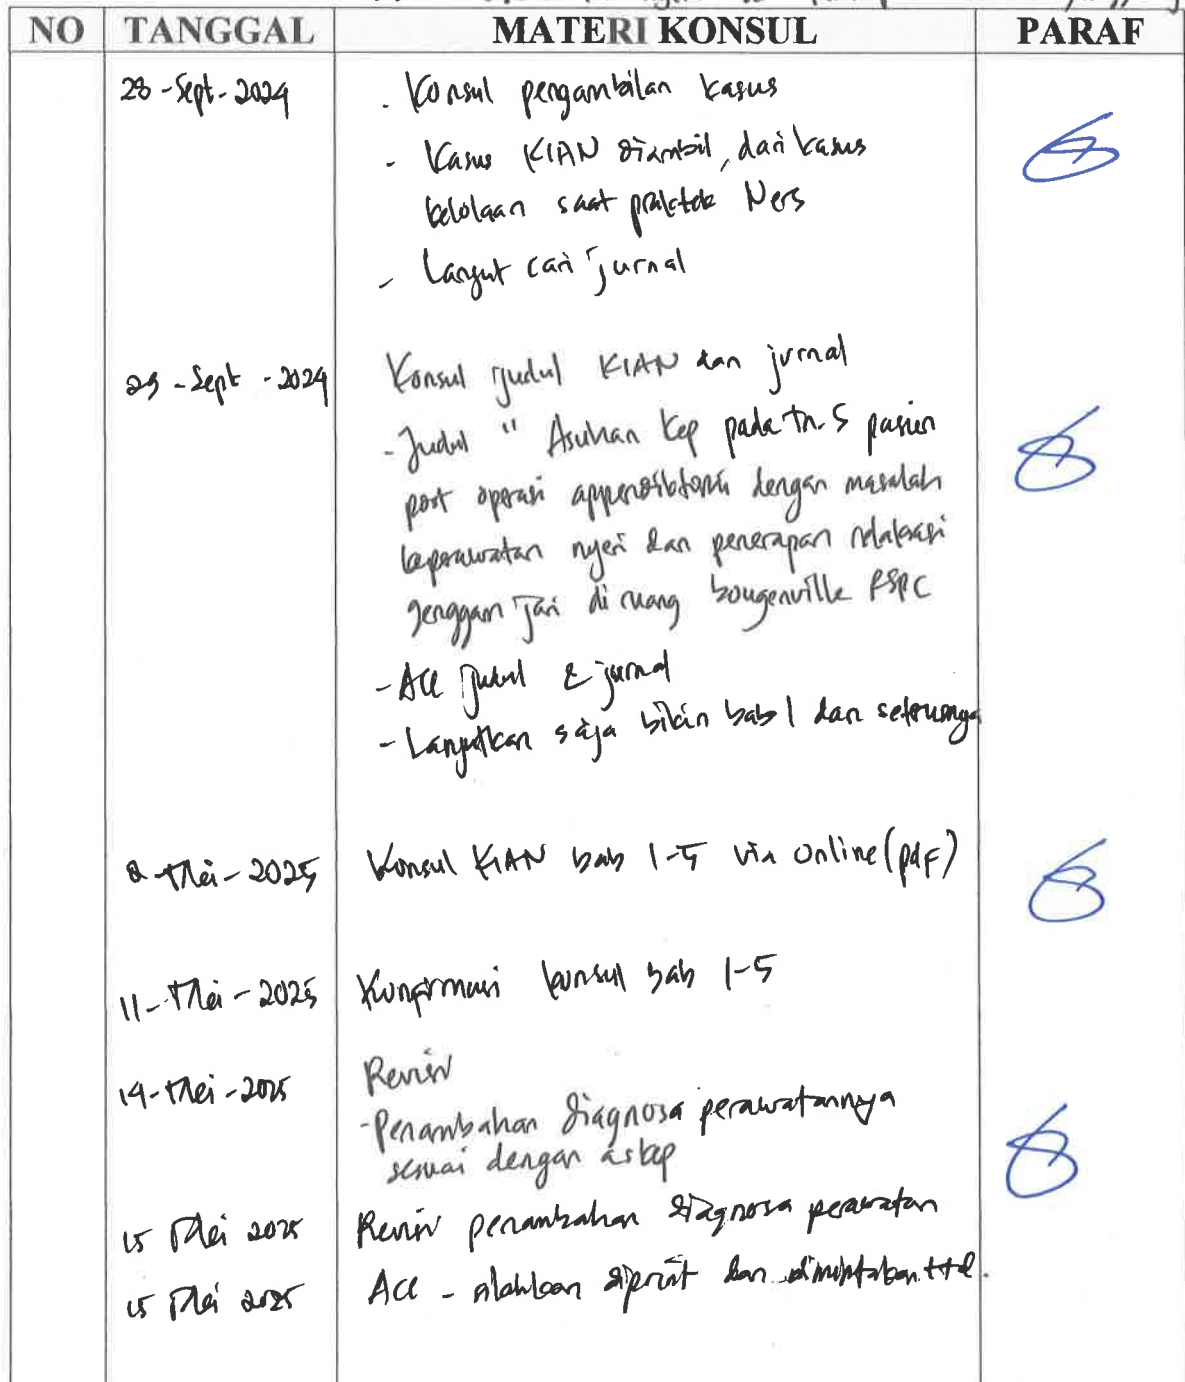 NO TANGGAL MATERI KONSUL PARAF
28 - Sept - 2024 - Konsul pengambilan kasus
- Kasus KIAN diambil, dari kasus
kelolaan saat praktek Ners
- Lanjut cari jurnal
29 - Sept - 2024 Konsul judul KIAN dan jurnal
- Judul " Asuhan Kep pada tn. S pasien
post operasi dengan masalah
keperawatan nyeri dan penerapan relaksasi
genggam jari di ruang bougenville RSPC
- Acc judul & jurnal
- Lanjutkan saja bikin bab 1 dan seterusnya
8 - Mei - 2025 Konsul KIAN bab 1-5 via online (pdf)
11 - Mei - 2025 Konfirmasi konsul bab 1-5
14 - Mei - 2025 Revisi
- Penambahan diagnosa perawatannya
sesuai dengan askep
15 Mei 2025 Revisi penambahan diagnosa perawatan
15 Mei 2025 Acc - silahkan diprint dan dimintakan ttd.